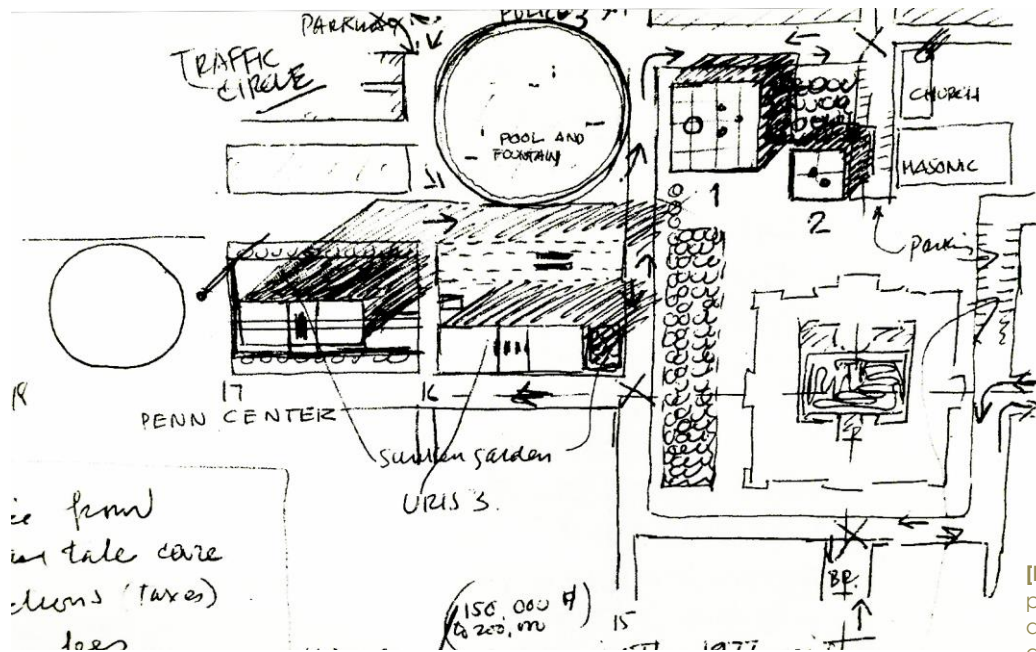 PARKING
TRAFFIC
CIRCLE
POOL AND
FOUNTAIN
CHURCH
MASONIC
1
2
Parkin
18
17
16
PENN CENTER
sunken garden
URIS 3.
from
take care
(taxes)
fees
(150,000 #
to 200,000)
15
BR.
1977